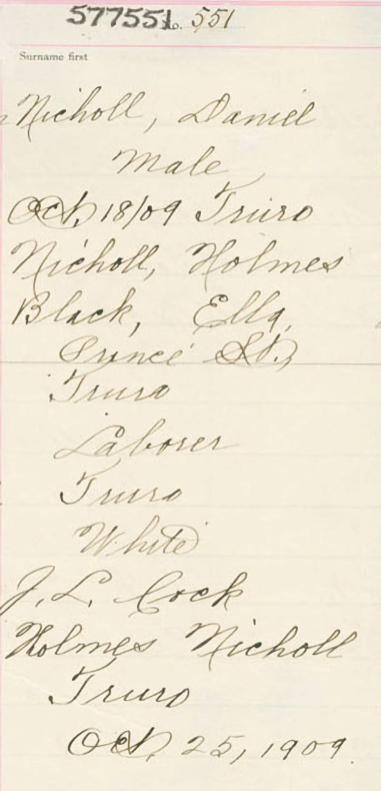 577551 No. 551
Surname first
Nicholl, Daniel
Male
Oct, 18/09 Truro
Nicholl, Holmes
Black, Ella,
Prince St.,
Truro
Laborer
Truro
White
J. L. Cock
Holmes Nicholl
Truro
Oct, 25, 1909.